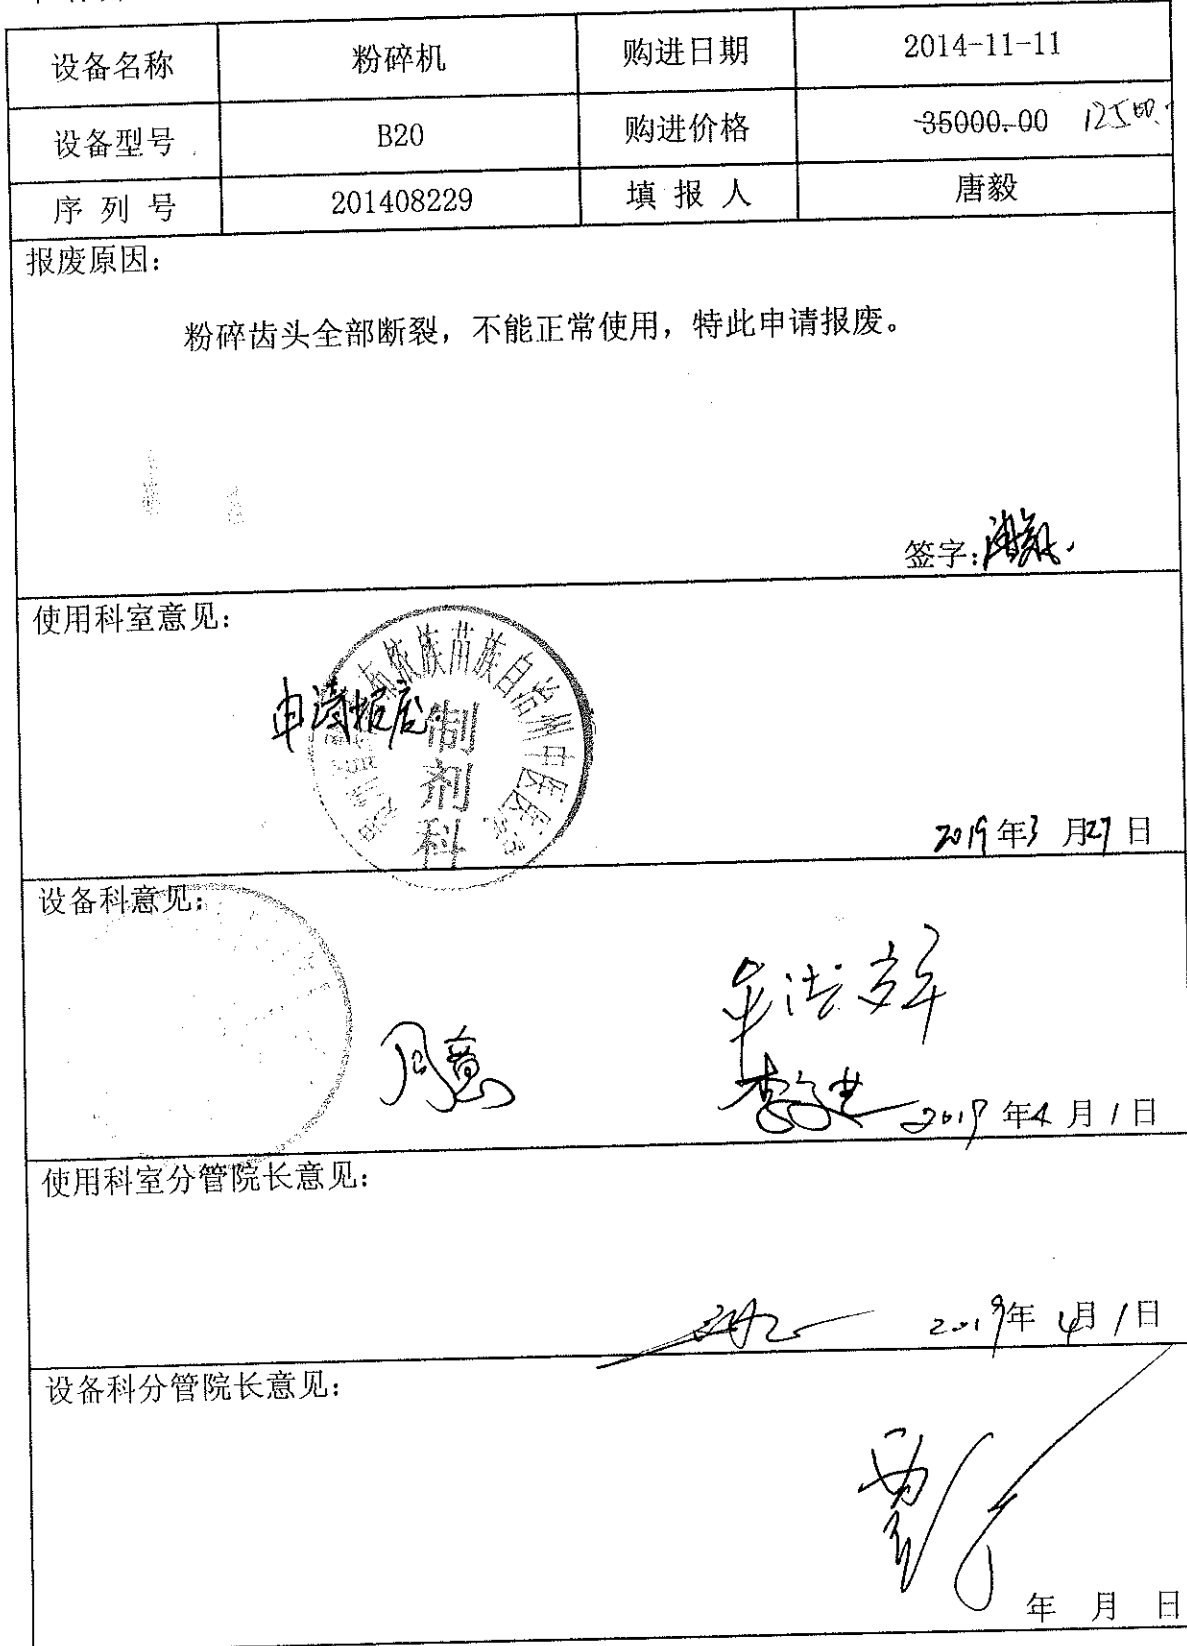 设备名称 粉碎机 购进日期 2014-11-11
设备型号 B20 购进价格 35000.00 12500.
序 列 号 201408229 填 报 人 唐毅
报废原因：
粉碎齿头全部断裂，不能正常使用，特此申请报废。
签字：唐毅
使用科室意见：
申请报废
布依族苗族自治州中医医院
制剂科
2019年3月27日
设备科意见：
同意
2019年4月1日
使用科室分管院长意见：
2019年4月1日
设备科分管院长意见：
年 月 日